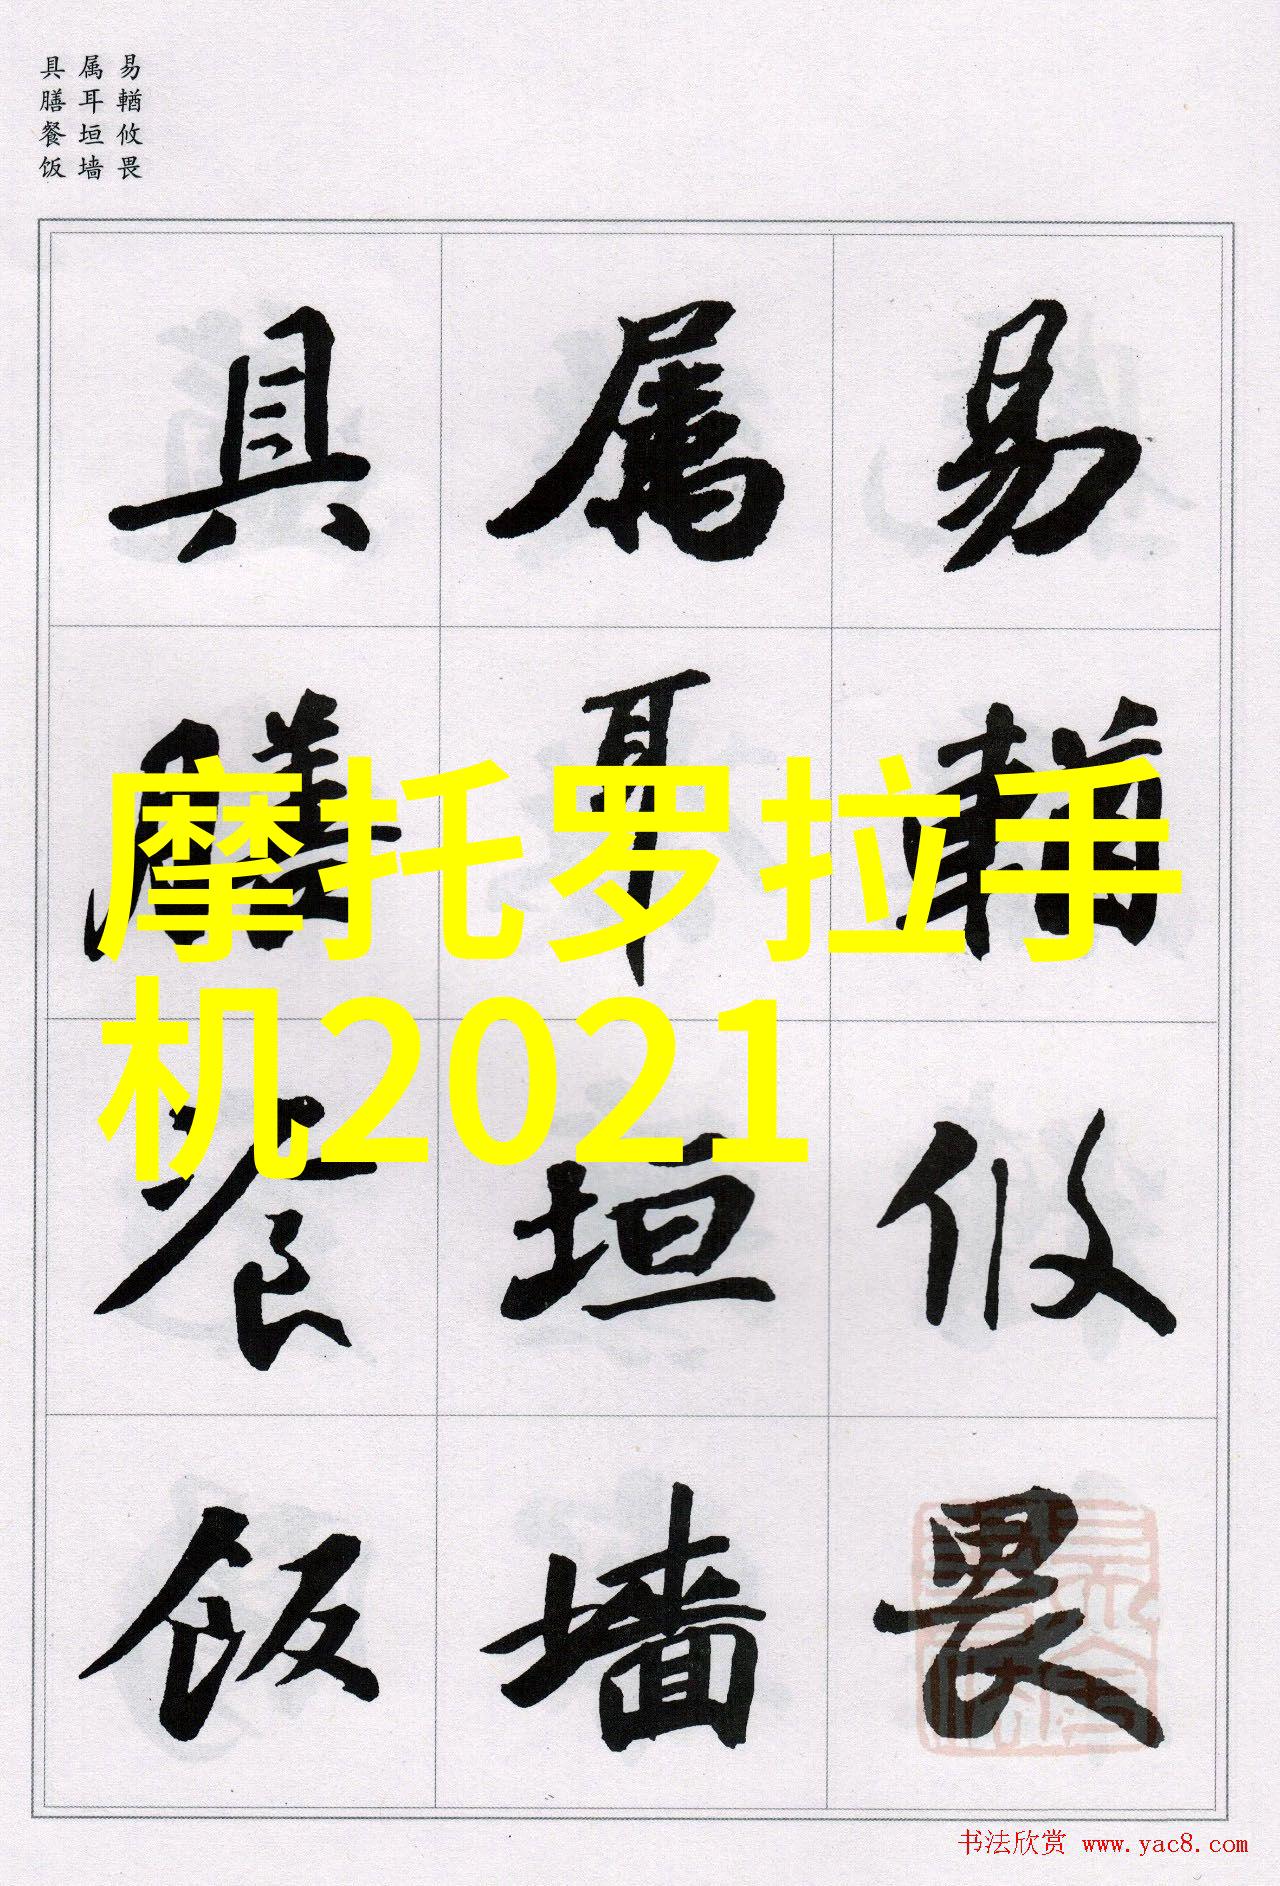 易輶攸畏
属耳垣墙
具膳餐饭
易輶攸畏
属耳垣墙
具膳餐饭
摩托罗拉手
机2021
书法欣赏 www.yac8.com